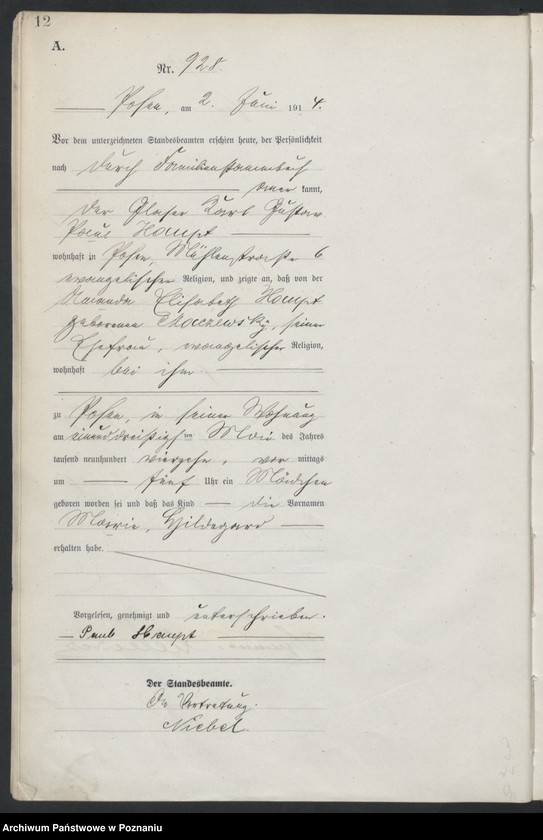 12
A.
Nr. 928.
Posen, am 2. Juni 1914.
Vor dem unterzeichneten Standesbeamten erschien heute, der Persönlichkeit
nach durch Familienstammbuch
aner kannt,
der Glaser Karl Gustav
Paul Haupt
wohnhaft in Posen, Mühlenstraße 6
evangelischer Religion, und zeigte an, daß von der
Amanda Elisabeth Haupt
geborenen, seiner
Ehefrau, evangelischer Religion,
wohnhaft bei ihm
zu Posen, in seiner Wohnung
am einunddreißigsten Mai des Jahres
tausend neunhundert vierzehn, vor mittags
um fünf Uhr ein Mädchen
geboren worden sei und daß das Kind die Vornamen
Marie, Hildegard
erhalten habe.
Vorgelesen, genehmigt und unterschrieben.
Paul Haupt
Der Standesbeamte.
In Vertretung.
Niebel.
Archiwum Państwowe w Poznaniu